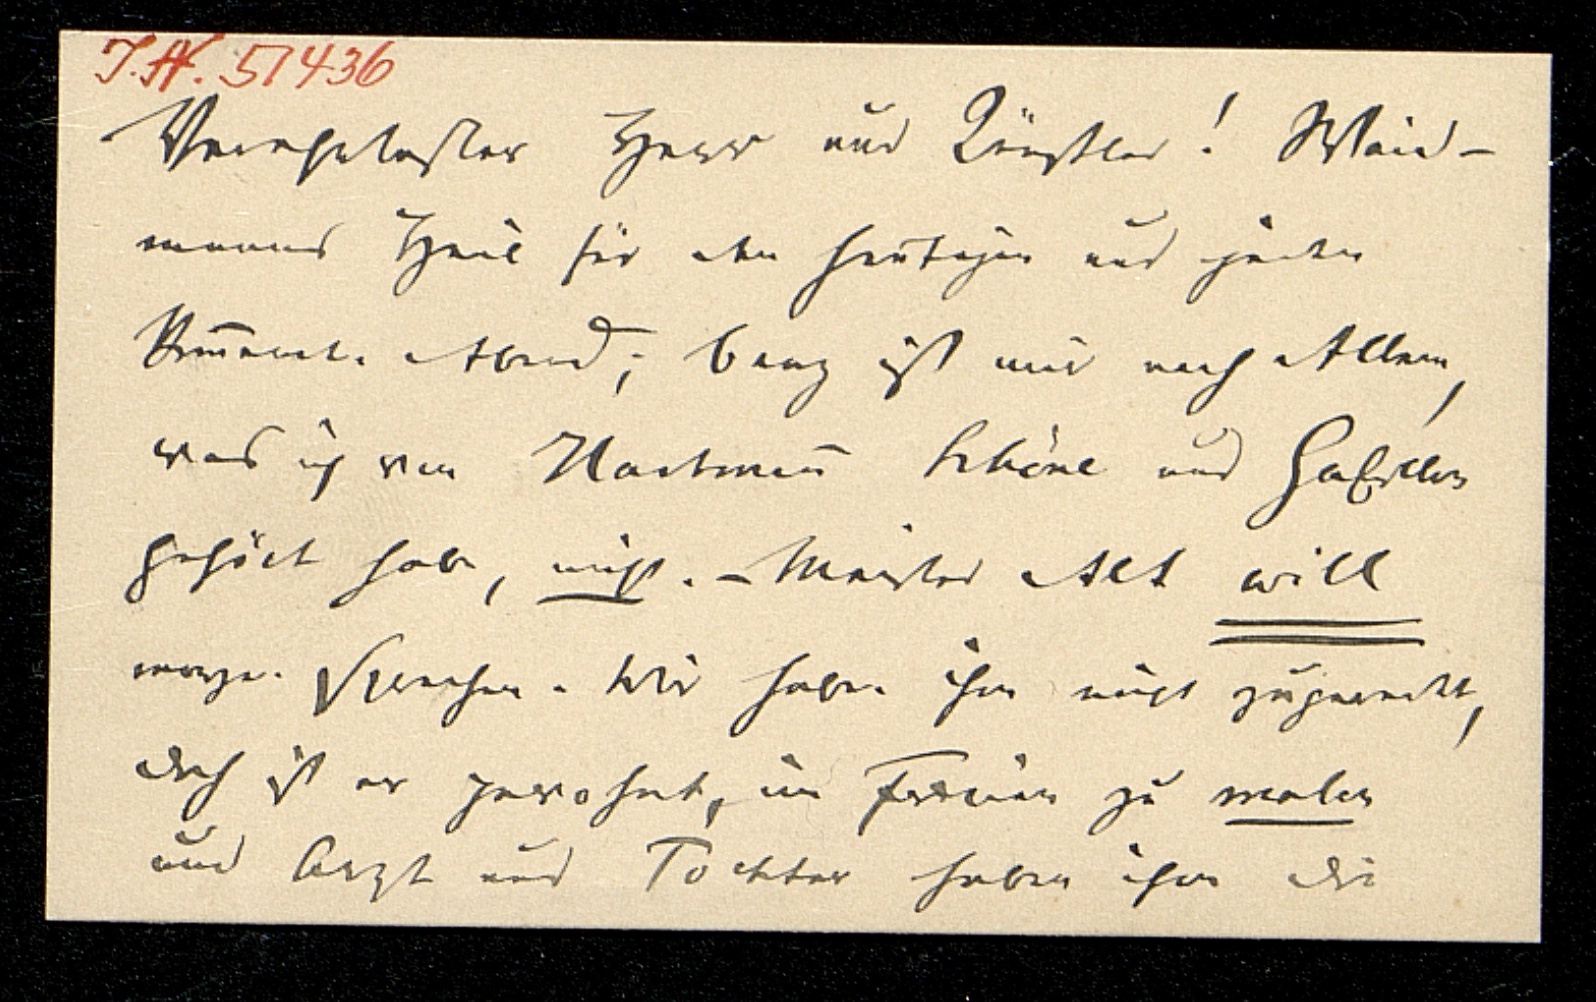 I.N. 51436
Verehrtester Herr und Künstler! Waid-
manns Heil für den heutigen und jeden
Abend; bang ist mir nach Allem,
was ich von Hartmañ Schöne und Gabillon
gehört habe, nicht. – Meister Alt will
morgen sprechen. Wir haben ihm nicht zugeredet,
doch ist er gewohnt, im Freien zu malen
und Arzt und Tochter haben ihm die